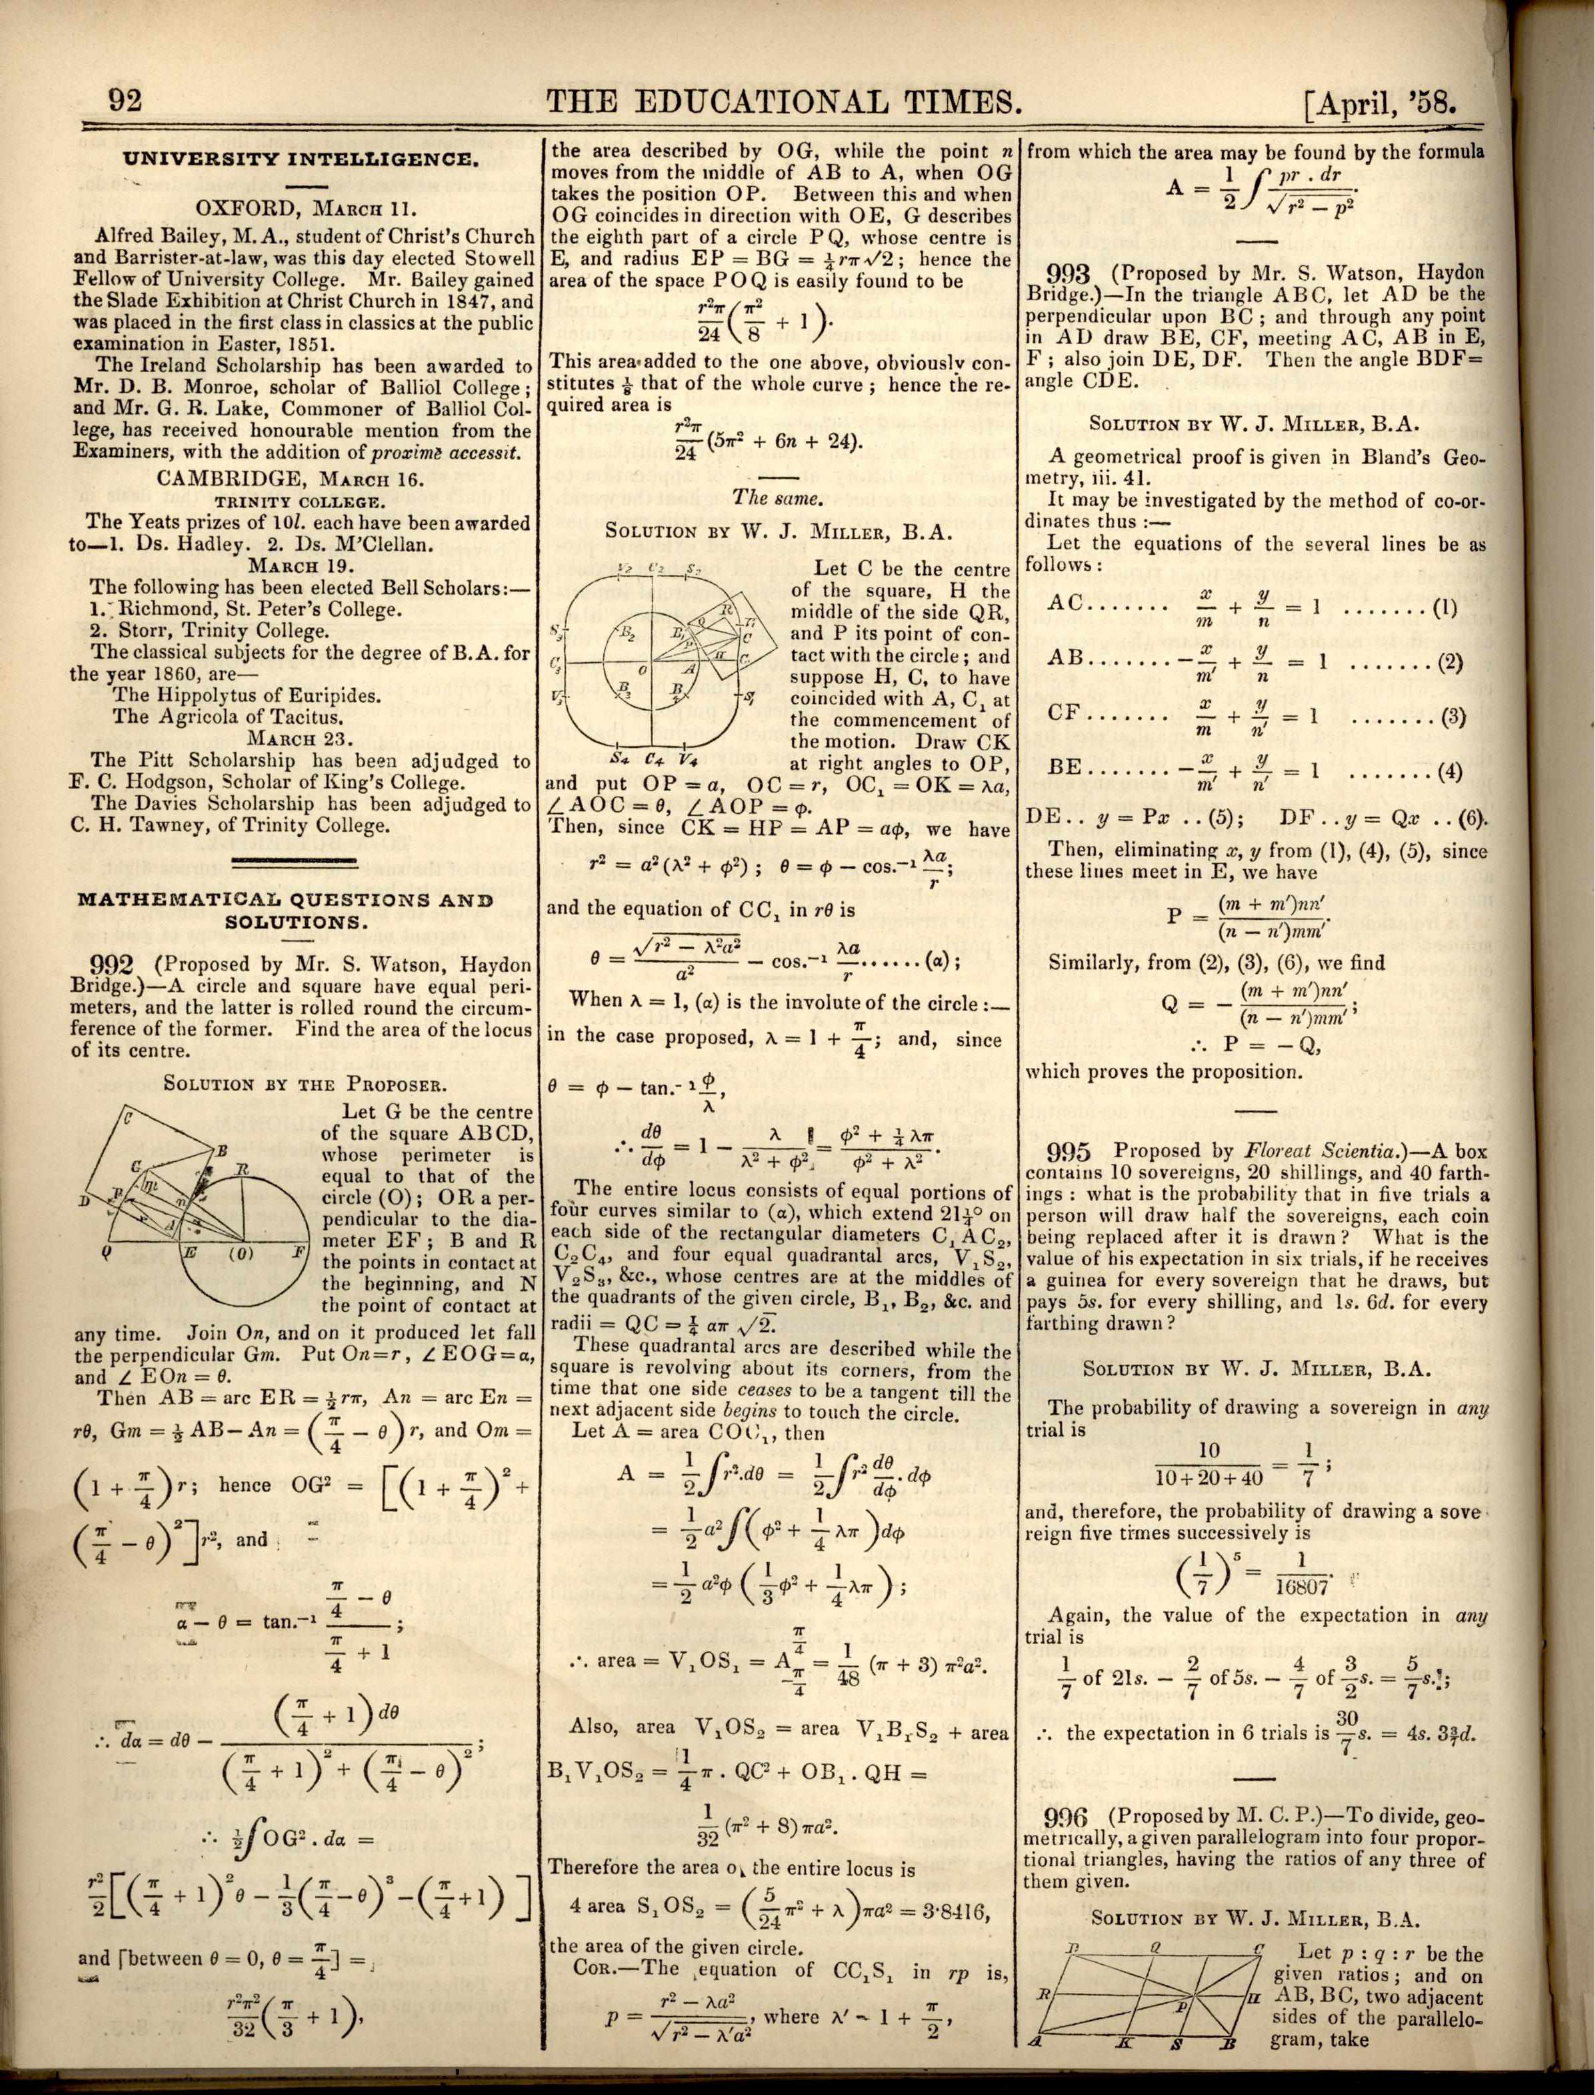 92
THE EDUCATIONAL TIMES.
[April, '58.
UNIVERSITY INTELLIGENCE.
OXFORD, MARCH 11.
Alfred Bailey, M.A., student of Christ's Church
and Barrister-at-law, was this day elected Stowell
Fellow of University College. Mr. Bailey gained
the Slade Exhibition at Christ Church in 1847, and
was placed in the first class in classics at the public
examination in Easter, 1851.
The Ireland Scholarship has been awarded to
Mr. D. B. Monroe, scholar of Balliol College;
and Mr. G. R. Lake, Commoner of Balliol Col-
lege, has received honourable mention from the
Examiners, with the addition of proximè accessit.
CAMBRIDGE, MARCH 16.
TRINITY COLLEGE.
The Yeats prizes of 10l. each have been awarded
to—1. Ds. Hadley. 2. Ds. M'Clellan.
MARCH 19.
The following has been elected Bell Scholars:—
1. Richmond, St. Peter's College.
2. Storr, Trinity College.
The classical subjects for the degree of B.A. for
the year 1860, are—
The Hippolytus of Euripides.
The Agricola of Tacitus.
MARCH 23.
The Pitt Scholarship has been adjudged to
F. C. Hodgson, Scholar of King's College.
The Davies Scholarship has been adjudged to
C. H. Tawney, of Trinity College.
MATHEMATICAL QUESTIONS AND
SOLUTIONS.
992 (Proposed by Mr. S. Watson, Haydon
Bridge.)—A circle and square have equal peri-
meters, and the latter is rolled round the circum-
ference of the former. Find the area of the locus
of its centre.
SOLUTION BY THE PROPOSER.
C
B
G
R
D
Q
E
(O)
F
Let G be the centre
of the square ABCD,
whose perimeter is
equal to that of the
circle (O); OR a per-
pendicular to the dia-
meter EF; B and R
the points in contact at
the beginning, and N
the point of contact at
any time. Join On, and on it produced let fall
the perpendicular Gm. Put On=r, ∠EOG=α,
and ∠ EOn = θ.
Then AB = arc ER = ½rπ, An = arc En =
rθ, Gm = ½ AB − An = (π/4 − θ) r, and Om =
(1 + π/4) r; hence OG² = [(1 + π/4)² +
(π/4 − θ)²] r², and
α − θ = tan.⁻¹ (π/4 − θ)/(π/4 + 1);
∴ dα = dθ − (π/4 + 1) dθ / ((π/4 + 1)² + (π/4 − θ)²);
∴ ½∫OG² . dα =
r²/2 [(π/4 + 1)² θ − 1/3 (π/4 − θ)³ − (π/4 + 1) ]
and [between θ = 0, θ = π/4] =
r²π²/32 (π/3 + 1),
the area described by OG, while the point n
moves from the middle of AB to A, when OG
takes the position OP. Between this and when
OG coincides in direction with OE, G describes
the eighth part of a circle PQ, whose centre is
E, and radius EP = BG = ¼rπ√2; hence the
area of the space POQ is easily found to be
r²π/24 (π²/8 + 1).
This area added to the one above, obviously con-
stitutes ⅛ that of the whole curve; hence the re-
quired area is
r²π/24 (5π² + 6n + 24).
The same.
SOLUTION BY W. J. MILLER, B.A.
V₂ C₂ S₂
S₃
B₂
R
Q
C
O
A
H
B₃
V₃
S₁
S₄ C₄ V₄
Let C be the centre
of the square, H the
middle of the side QR,
and P its point of con-
tact with the circle; and
suppose H, C, to have
coincided with A, C₁ at
the commencement of
the motion. Draw CK
at right angles to OP,
and put OP = a, OC = r, OC₁ = OK = λa,
∠AOC = θ, ∠AOP = φ.
Then, since CK = HP = AP = aφ, we have
r² = a² (λ² + φ²); θ = φ − cos.⁻¹ λa/r;
and the equation of CC₁ in rθ is
θ = √(r² − λ²a²)/a² − cos.⁻¹ λa/r ...... (α);
When λ = 1, (α) is the involute of the circle:—
in the case proposed, λ = 1 + π/4; and, since
θ = φ − tan.⁻¹ φ/λ,
∴ dθ/dφ = 1 − λ/(λ² + φ²) = (φ² + ¼ λπ)/(φ² + λ²).
The entire locus consists of equal portions of
four curves similar to (α), which extend 21¼° on
each side of the rectangular diameters C₁AC₂,
C₂C₄, and four equal quadrantal arcs, V₁S₂,
V₂S₃, &c., whose centres are at the middles of
the quadrants of the given circle, B₁, B₂, &c. and
radii = QC = ¼ aπ √2.
These quadrantal arcs are described while the
square is revolving about its corners, from the
time that one side ceases to be a tangent till the
next adjacent side begins to touch the circle.
Let A = area COC₁, then
A = 1/2 ∫r².dθ = 1/2 ∫r² dθ/dφ . dφ
= 1/2 a² ∫(φ² + 1/4 λπ) dφ
= 1/2 a²φ (1/3 φ² + 1/4 λπ);
∴ area = V₁OS₁ = A (π/4, −π/4) = 1/48 (π + 3) π²a².
Also, area V₁OS₂ = area V₁B₁S₂ + area
B₁V₁OS₂ = 1/4 π . QC² + OB₁ . QH =
1/32 (π² + 8) πa².
Therefore the area of the entire locus is
4 area S₁OS₂ = (5/24 π² + λ) πa² = 3·8416,
the area of the given circle.
COR.—The equation of CC₁S₁ in rp is,
p = (r² − λa²)/√(r² − λ'a²), where λ' = 1 + π/2,
from which the area may be found by the formula
A = 1/2 ∫ pr . dr/√(r² − p²).
993 (Proposed by Mr. S. Watson, Haydon
Bridge.)—In the triangle ABC, let AD be the
perpendicular upon BC; and through any point
in AD draw BE, CF, meeting AC, AB in E,
F; also join DE, DF. Then the angle BDF=
angle CDE.
SOLUTION BY W. J. MILLER, B.A.
A geometrical proof is given in Bland's Geo-
metry, iii. 41.
It may be investigated by the method of co-or-
dinates thus:—
Let the equations of the several lines be as
follows:
AC....... x/m + y/n = 1 ....... (1)
AB....... −x/m' + y/n = 1 ....... (2)
CF....... x/m + y/n' = 1 ....... (3)
BE....... −x/m' + y/n' = 1 ....... (4)
DE.. y = Px .. (5); DF .. y = Qx .. (6).
Then, eliminating x, y from (1), (4), (5), since
these lines meet in E, we have
P = (m + m')nn'/(n − n')mm'.
Similarly, from (2), (3), (6), we find
Q = − (m + m')nn'/(n − n')mm';
∴ P = − Q,
which proves the proposition.
995 Proposed by Floreat Scientia.)—A box
contains 10 sovereigns, 20 shillings, and 40 farth-
ings: what is the probability that in five trials a
person will draw half the sovereigns, each coin
being replaced after it is drawn? What is the
value of his expectation in six trials, if he receives
a guinea for every sovereign that he draws, but
pays 5s. for every shilling, and 1s. 6d. for every
farthing drawn?
SOLUTION BY W. J. MILLER, B.A.
The probability of drawing a sovereign in any
trial is
10/(10+20+40) = 1/7;
and, therefore, the probability of drawing a sove
reign five times successively is
(1/7)⁵ = 1/16807.
Again, the value of the expectation in any
trial is
1/7 of 21s. − 2/7 of 5s. − 4/7 of 3/2 s. = 5/7 s.;
∴ the expectation in 6 trials is 30/7 s. = 4s. 3 3/7 d.
996 (Proposed by M. C. P.)—To divide, geo-
metrically, a given parallelogram into four propor-
tional triangles, having the ratios of any three of
them given.
SOLUTION BY W. J. MILLER, B.A.
D Q C
R P H
A K S B
Let p : q : r be the
given ratios; and on
AB, BC, two adjacent
sides of the parallelo-
gram, take